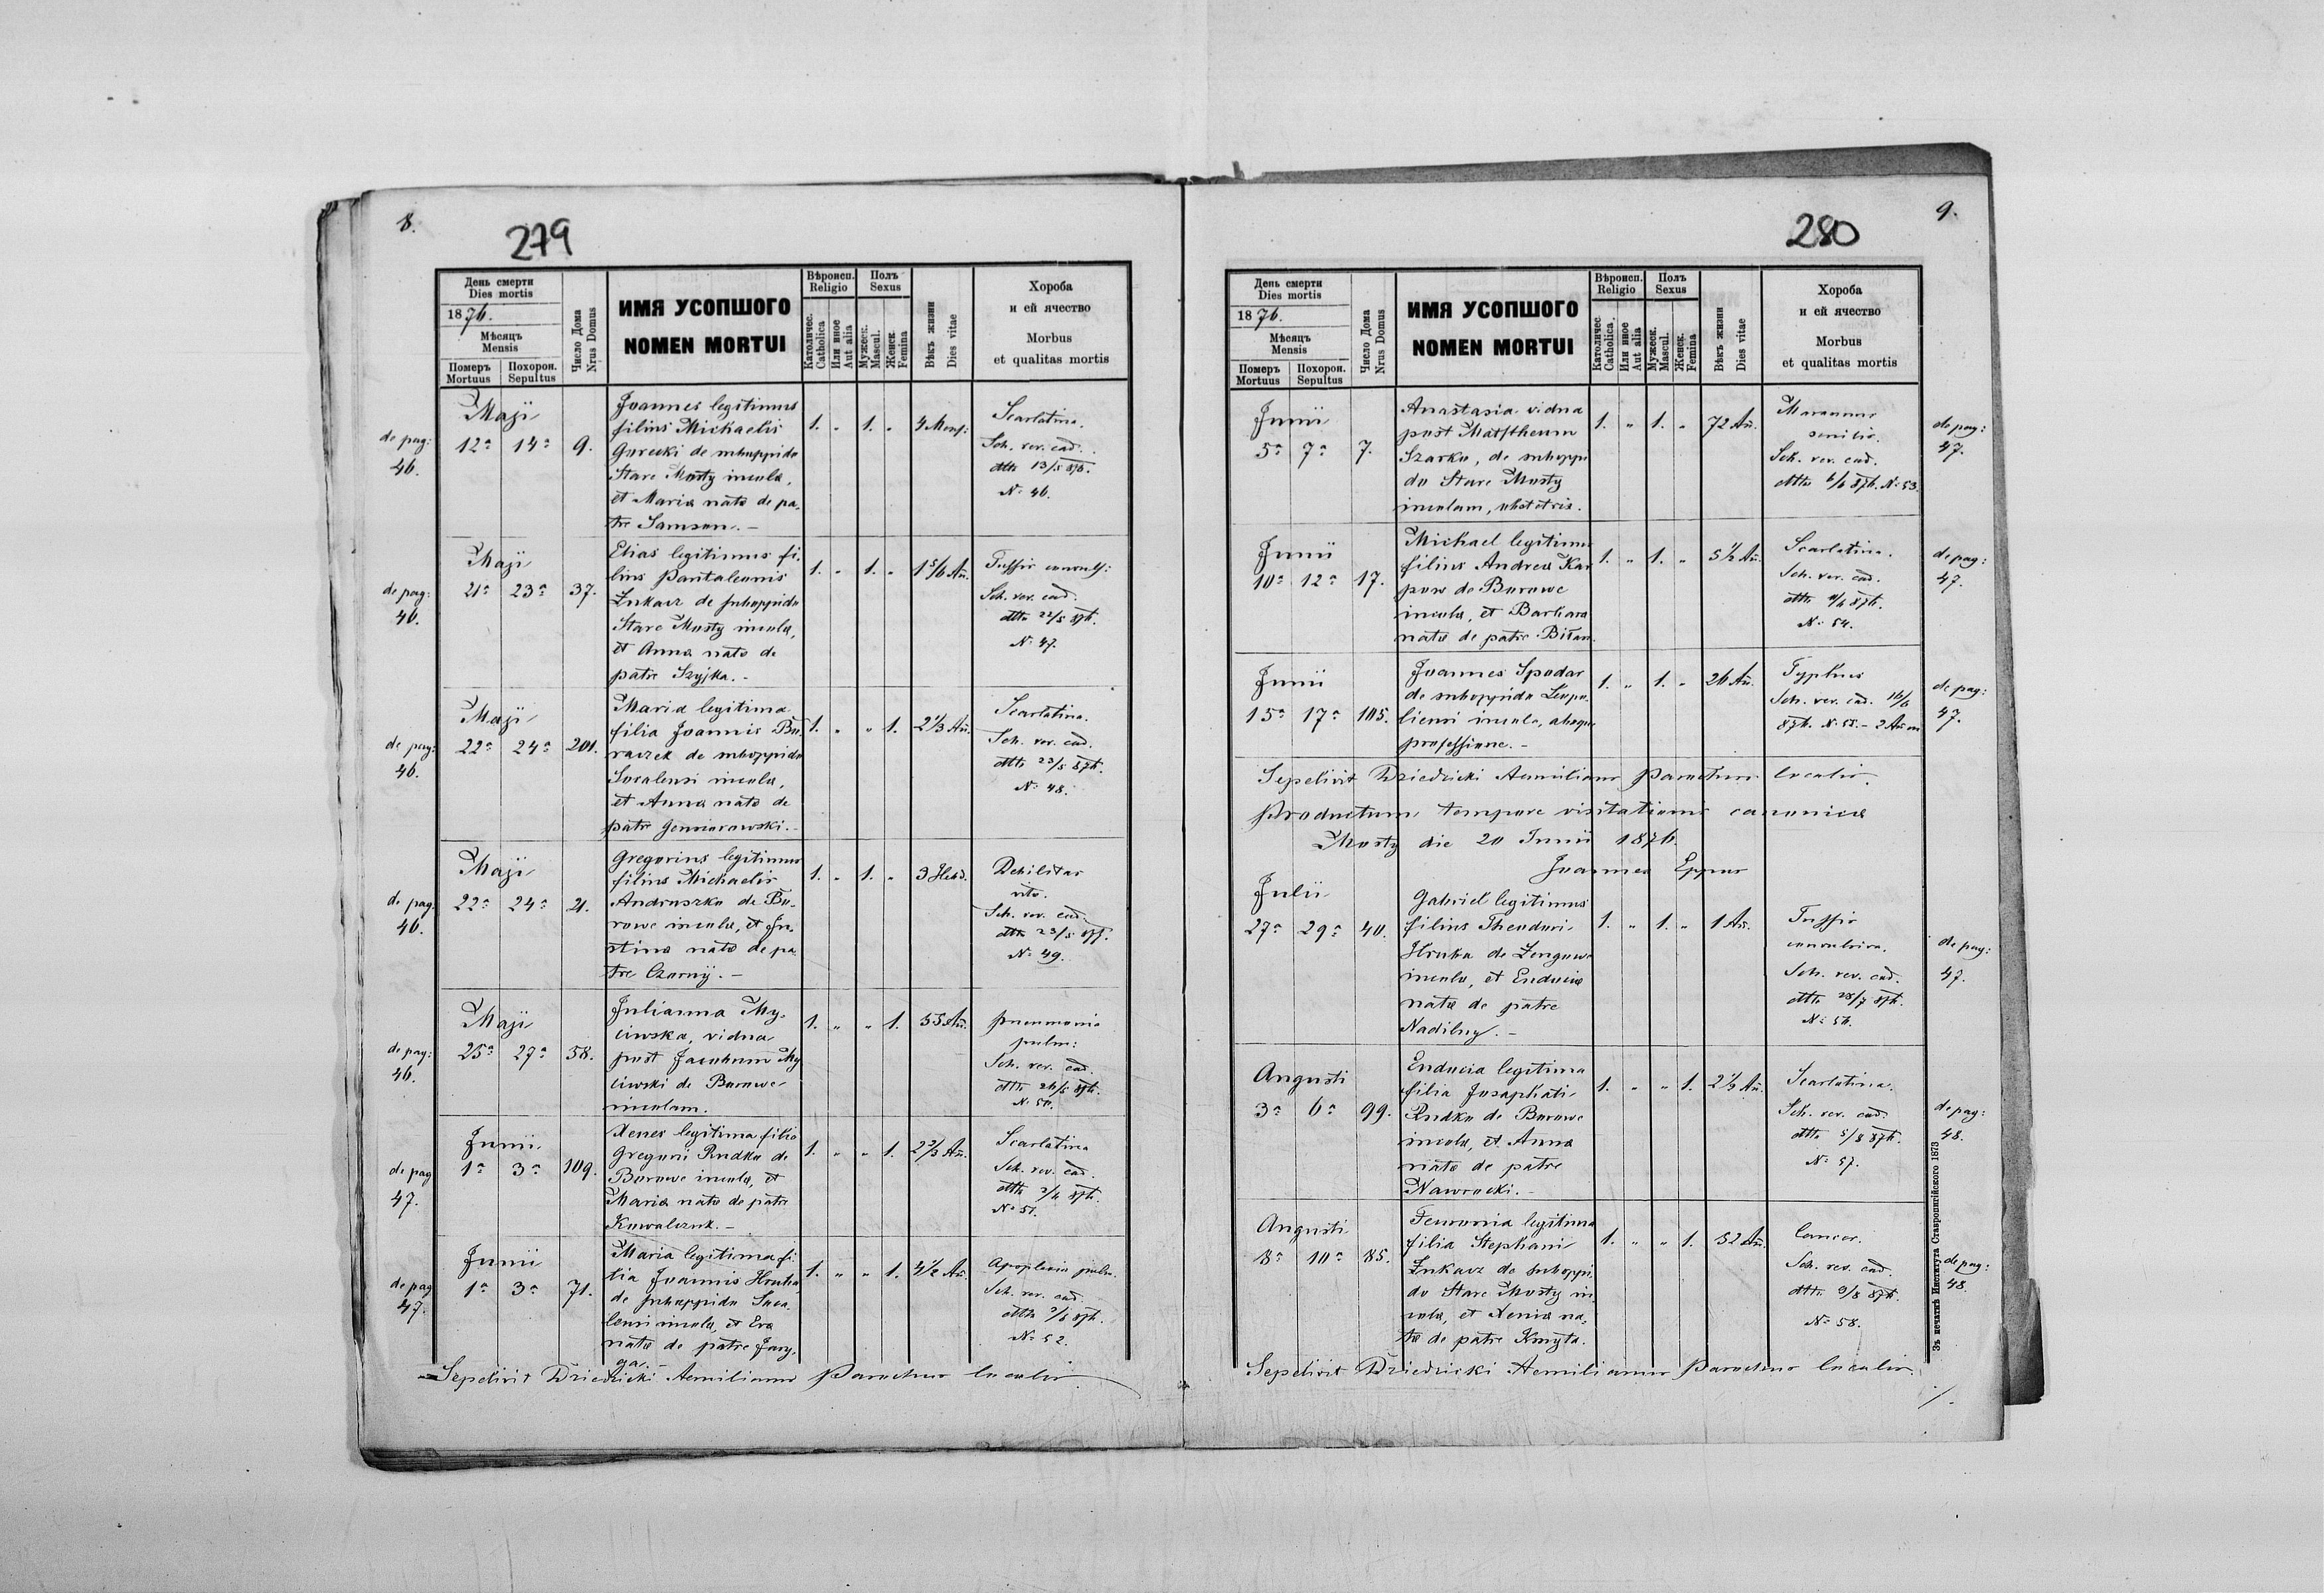 8.
279
День смерти
Dies mortis
1876.
Мѣсяцъ
Mensis
Померъ
Mortuus
Похорон.
Sepultus
Число Дома
Nrus Domus
ИМЯ УСОПШОГО
NOMEN MORTUI
Вѣроисп.
Religio
Католичес.
Catholica
Или иное
Aut alia
Полъ
Sexus
Мужеск.
Mascul.
Женск.
Femina
Вѣкъ жизни
Dies vitae
Хороба
и ей ячество
Morbus
et qualitas mortis
de pag:
46.
Maji
12a 14a 9.
Joannes legitimus
filius Michaelis
Gorecki de suboppido
Stare Mosty incola,
et Maria nata de pa-
tre Samson. –
1. „ 1. „ 4 Mens:
Scarlatina.
Sch. rev. cad.
dtto 13/5 876.
No 46.
de pag:
46.
Maji
21a 23a 37.
Elias legitimus fi-
lius Pantaleonis
Łukacz de suboppido
Stare Mosty incola,
et Anna nata de
patre Szyjka. –
1. „ 1. „ 1 5/6 An.
Tussis convuls:
Sch. rev. cad.
dtto 22/5 876.
No 47.
de pag:
46.
Maji
22a 24a 201.
Maria legitima
filia Joannis Bu-
raczek de suboppido
Socalensi incola,
et Anna nata de
patre
1. „ „ 1. 2 1/3 An.
Scarlatina.
Sch. rev. cad.
dtto 23/5 876.
No 48.
de pag
46.
Maji
22a 24a 21.
Gregorius legitimus
filius Michaelis
Andruszko de Bo-
rowe incola, et Ju-
stina nata de pa-
tre Czornij. –
1. „ 1. „ 3 Hebd.
Debilitas
vitae.
Sch. rev. cad.
dtto 23/5 876.
No 49.
de pag:
46.
Maji
25a 27a 58.
Julianna My-
ciwska, vidua
post Jacobum My
ciwski de Borowe
incolam.
1. „ „ 1. 55 An.
Pneumonia
pulm:
Sch. rev. cad.
dtto 26/5 876.
No 50.
de pag
47.
Junii
1a 3a 109.
Xenes legitima filia
Gregorii Rudko de
Borowe incola, et
Maria nata de patre
Kowalczuk. –
1. „ „ 1. 2 2/3 An.
Scarlatina
Sch. rev. cad.
dtto 2/6 876.
No 51.
de pag
47.
Junii
1a 3a 71.
Maria legitima fi-
lia Joannis Hruba,
de suboppido Soca-
lensi incola, et Eva
nata de patre Jary-
ga. –
1. „ „ 1. 4 1/2 An.
Apoplexia pulm.
Sch. rev. cad.
dtto 2/6 876.
No 52.
Sepelivit Dziedzicki Aemilianus Parochus localis
9.
280
День смерти
Dies mortis
1876.
Мѣсяцъ
Mensis
Померъ
Mortuus
Похорон.
Sepultus
Число Дома
Nrus Domus
ИМЯ УСОПШОГО
NOMEN MORTUI
Вѣроисп.
Religio
Католичес
Catholica.
Или иное
Aut alia
Полъ
Sexus
Мужеск.
Mascul.
Женск.
Femina
Вѣкъ жизни
Dies vitae
Хороба
и ей ячество
Morbus
et qualitas mortis
Junii
5a 7a 7.
Anastasia vidua
post Matftheum
Szarko, de suboppi
do Stare Mosty
incolam, obstetrix.
1. „ 1. „ 72 An.
Marasmus
senilis.
Sch. rev. cad.
dtto 6/6 876. No 53.
de pag:
47.
Junii
10a 12a 17.
Michael legitimus
filius Andrea Kar
pow de Borowe
incola, et Barbara
nata de patre Biłan.
1. „ 1. „ 5 1/2 An.
Scarlatina.
Sch. rev. cad.
dtto 11/6 876.
No 54.
de pag:
47.
Junii
15a 17a 105.
Joannes Spodar
de suboppido Leopo-
liensi incola, absque
professione. –
1. „ 1. „ 26 An.
Typhus
Sch. rev. cad. 16/6
876. No 55.
de pag:
47.
Sepelivit Dziedzicki Aemilianus Parochus localis.
Productum tempore visitationis canonica
Mosty die 20 Junii 1876.
Joannes Eppus
Julii
27a 29a 40.
Gabriel legitimus
filius Theodori
Hruba de Zengowe
incola, et Eudocia
nata de patre
Nadilny. –
1. „ 1. „ 1 An.
Tussis
convulsiva.
Sch. rev. cad.
dtto 28/7 876.
No 56.
de pag:
47.
Augusti
3a 6a 99.
Eudocia legitima
filia Josaphati
Rudko de Borowe
incola, et Anna
nata de patre
Nawrocki. –
1. „ „ 1. 2 1/3 An.
Scarlatina.
Sch. rev. cad.
dtto 5/8 876.
No 57.
de pag:
48.
Augusti
8a 10a 85.
Femronia legitima
filia Stephani
Łukacz de suboppi-
do Stare Mosty in-
cola, et Xenia na-
ta de patre Kmyta.
1. „ „ 1. 52 An.
Cancer.
Sch. rev. cad.
dtto 9/8 876.
No 58.
de pag:
48.
Зъ печатнѣ Института Ставропигійского 1873
Sepelivit Dziedzicki Aemilianus Parochus localis.